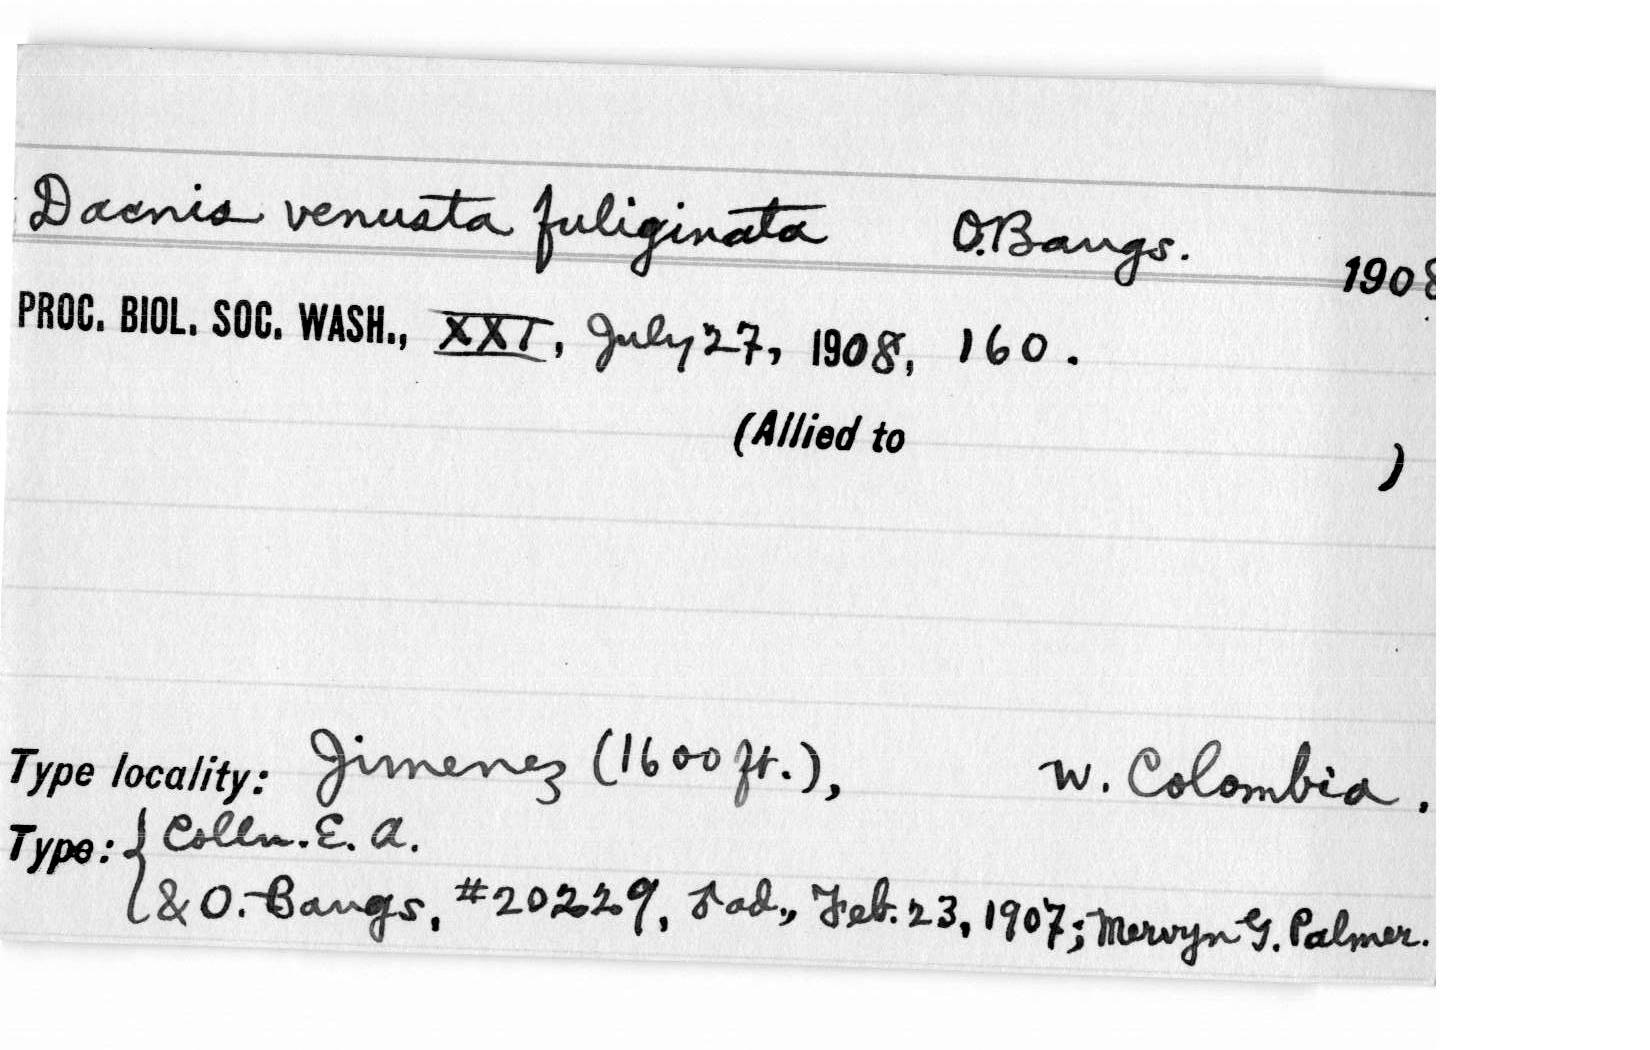 Dacnis venusta fuliginata O. Bangs. 1908
PROC. BIOL. SOC. WASH., XXI, July 27, 1908, 160.
(Allied to )
Type locality: Jimenez (1600 ft.), W. Colombia.
Type: { Colln. E. A.
& O. Bangs, #20229, ad., Feb. 23, 1907; Mervyn G. Palmer.